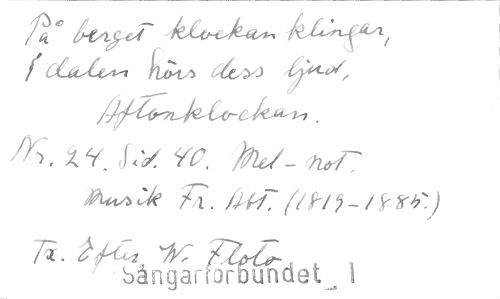 På berget klockan klingar,
i dalen hörs dess ljud.
Aftonklockan.
Nr. 24. Sid. 40. Mel-not.
Musik Fr. Abt. (1819-1885.)
Tx. Efter W. Floto
Sångarförbundet I